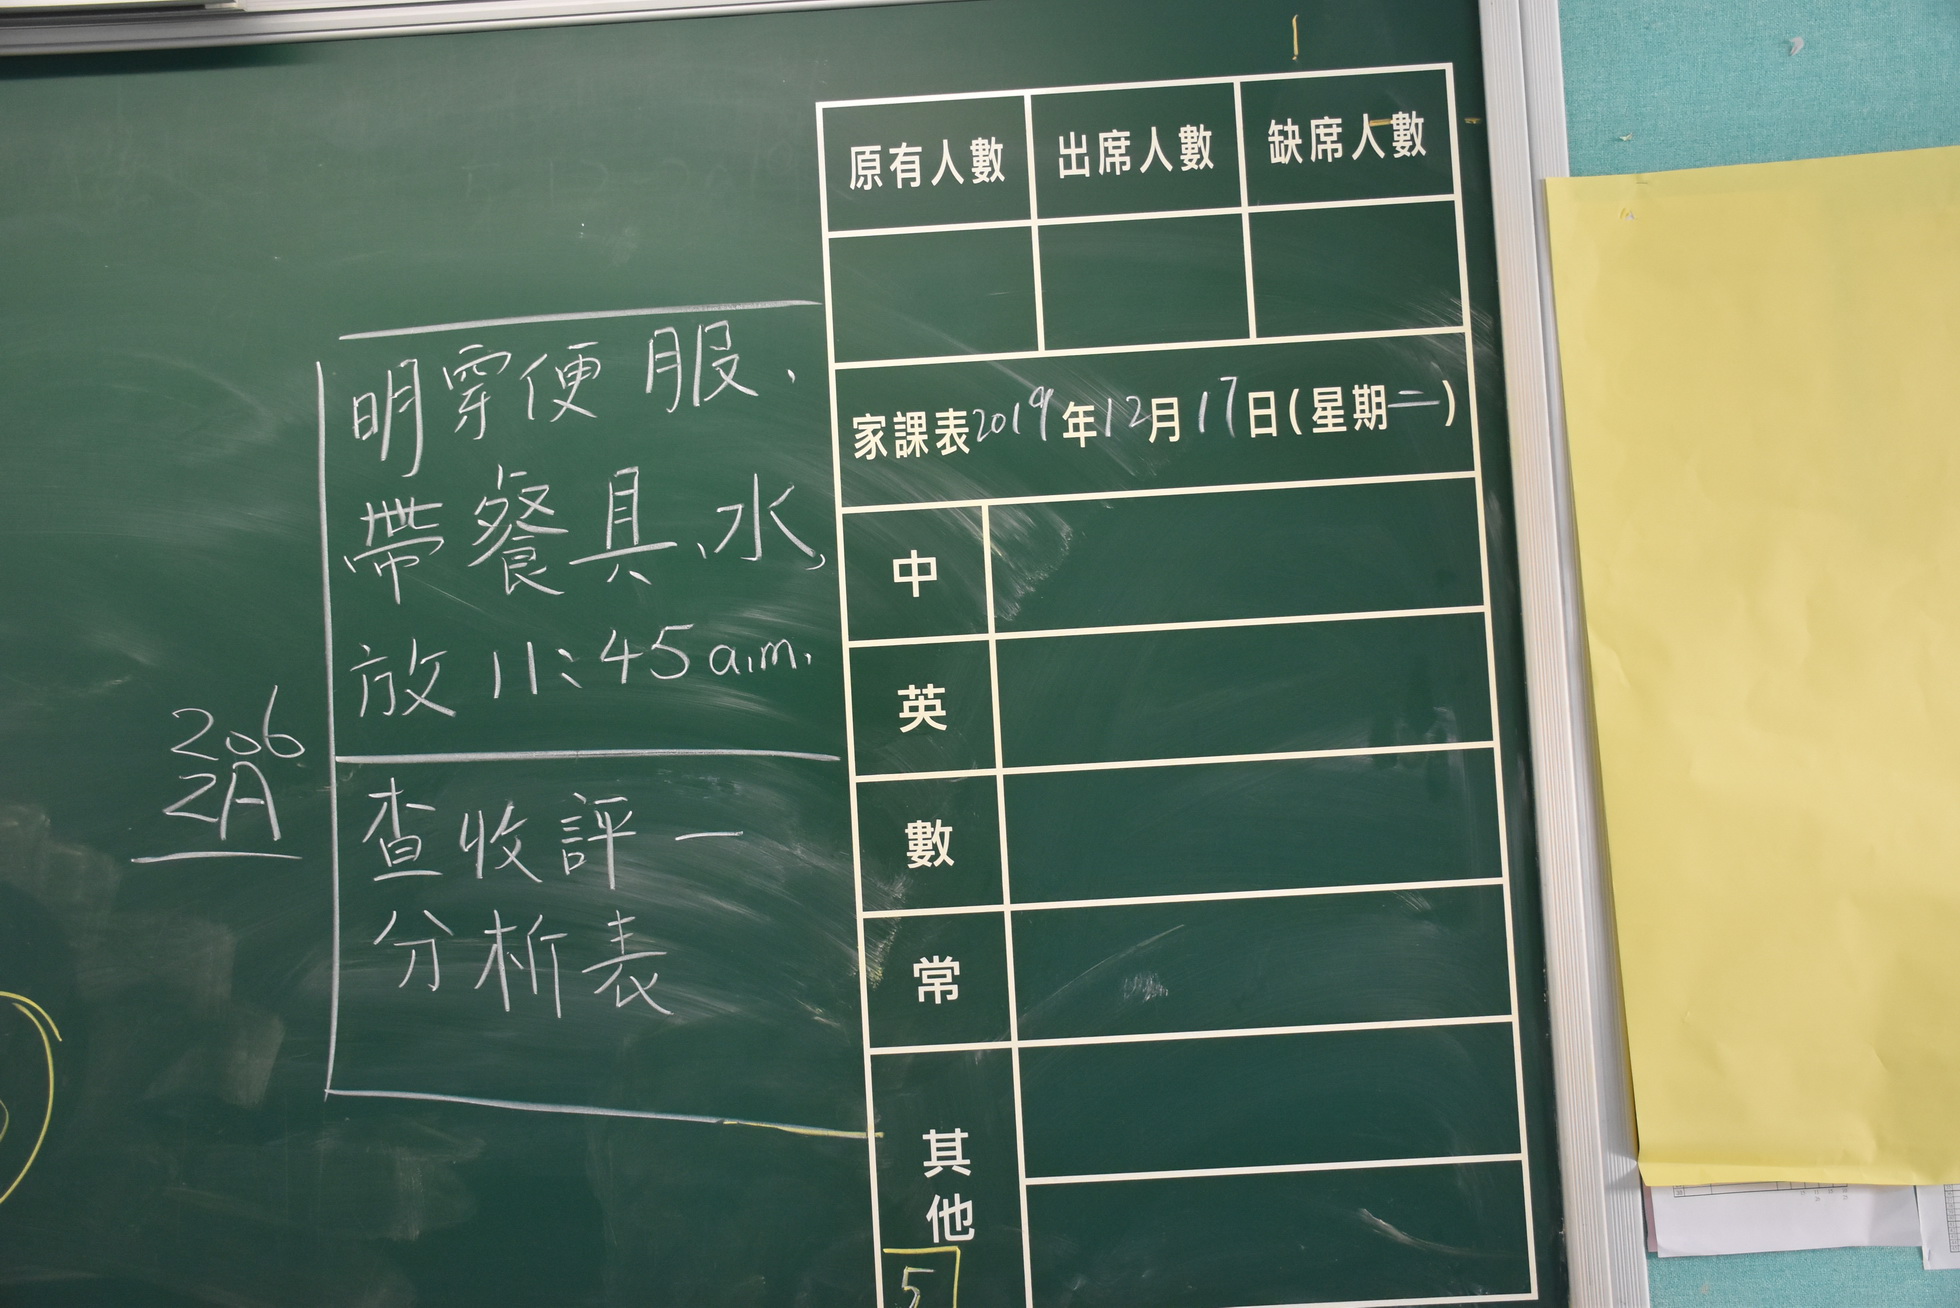 原有人數 出席人數 缺席人數
家課表2019年12月17日(星期二)
中
英
數
常
其他
5
明穿便服、
帶餐具、水,
放 11:45 a.m.
查收評一
分析表
206
2A